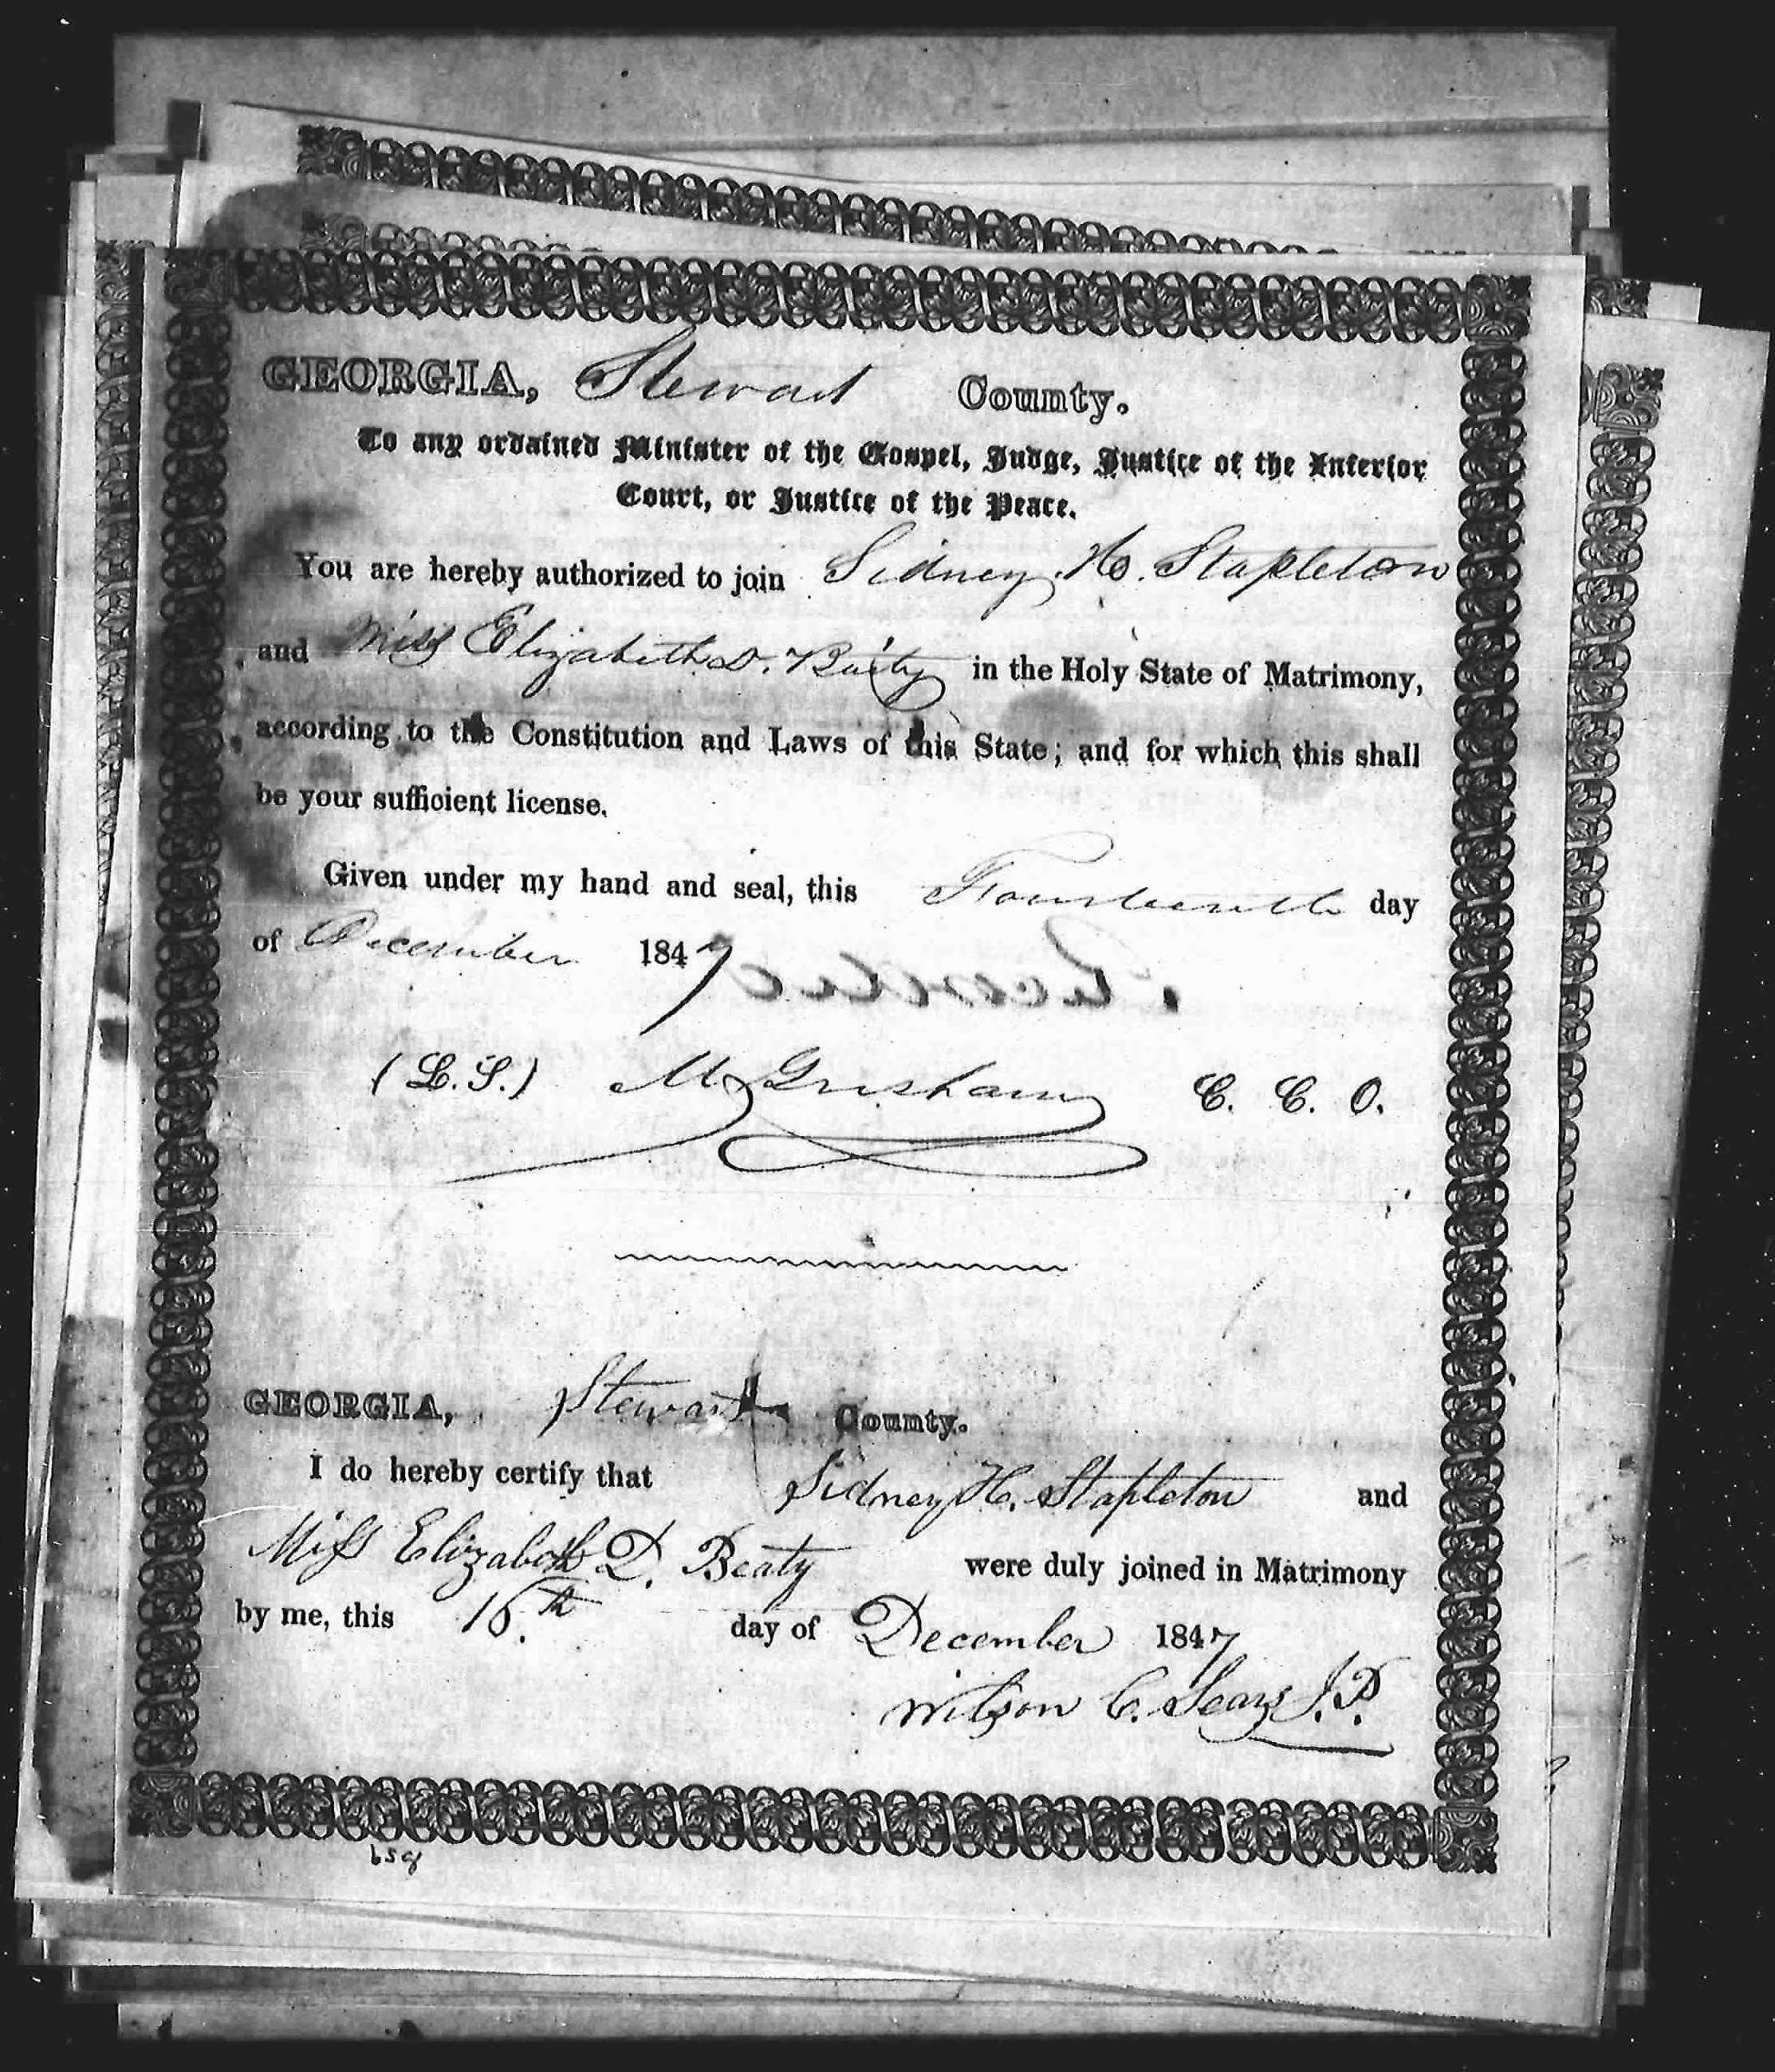 GEORGIA, Stewart County.
To any ordained Minister of the Gospel, Judge, Justice of the Inferior
Court, or Justice of the Peace.
You are hereby authorized to join Sidney H. Stapleton
and Miss Elizabeth D. Beaty in the Holy State of Matrimony,
according to the Constitution and Laws of this State; and for which this shall
be your sufficient license.
Given under my hand and seal, this Fourteenth day
of December 1847
(L. S.) M Gresham C. C. O.
GEORGIA, Stewart County.
I do hereby certify that Sidney H. Stapleton and
Miss Elizabeth D. Beaty were duly joined in Matrimony
by me, this 16th day of December 1847
Wilson C. Sears J.P.